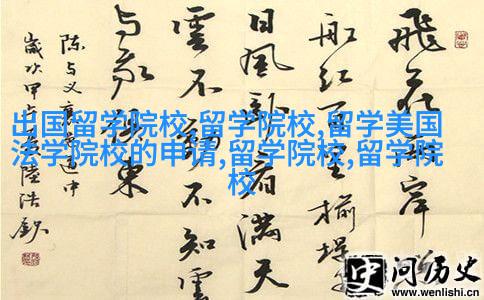 飛花兩岸
船紅百里榆堤
日風臥看滿天
雲不動不知雲
与我俱東
陈与义襄邑道中
歲次甲午夏陸浩
出国留学院校,留学院校,留学美国
法学院校的申请,留学院校,留学院
校
史问历史
www.wenlishi.cn